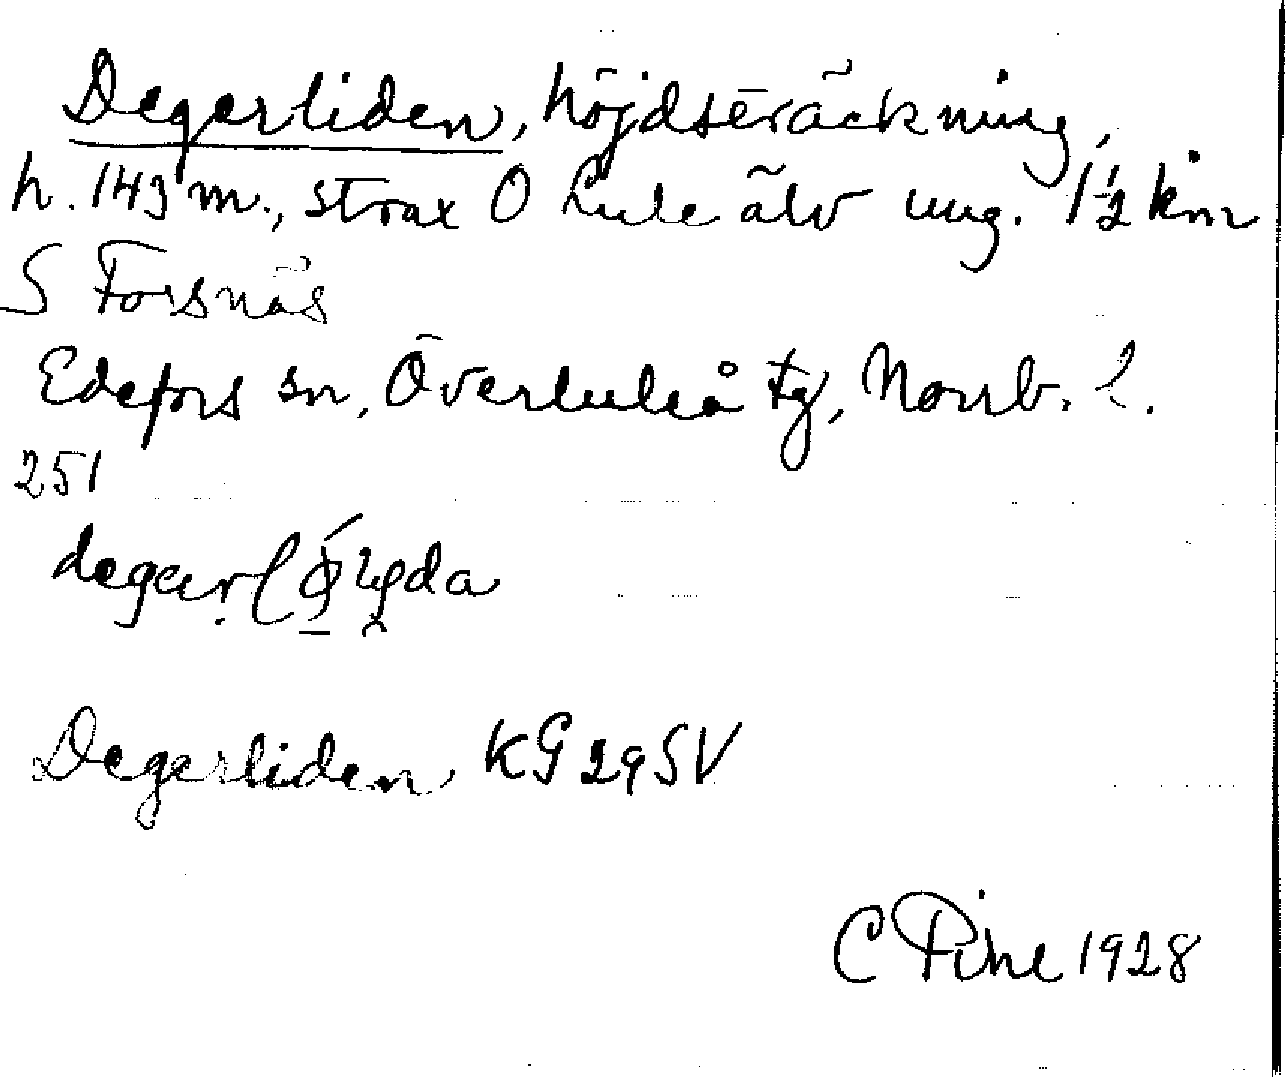 Degerliden, höjdsträckning,
h. 143 m., strax O Lule älv ung. 1½ km
S Forsnäs
Edefors sn, Överluleå tg, Norrb. l.
251
Degerliden KG 29 SV
C Pihl 1928